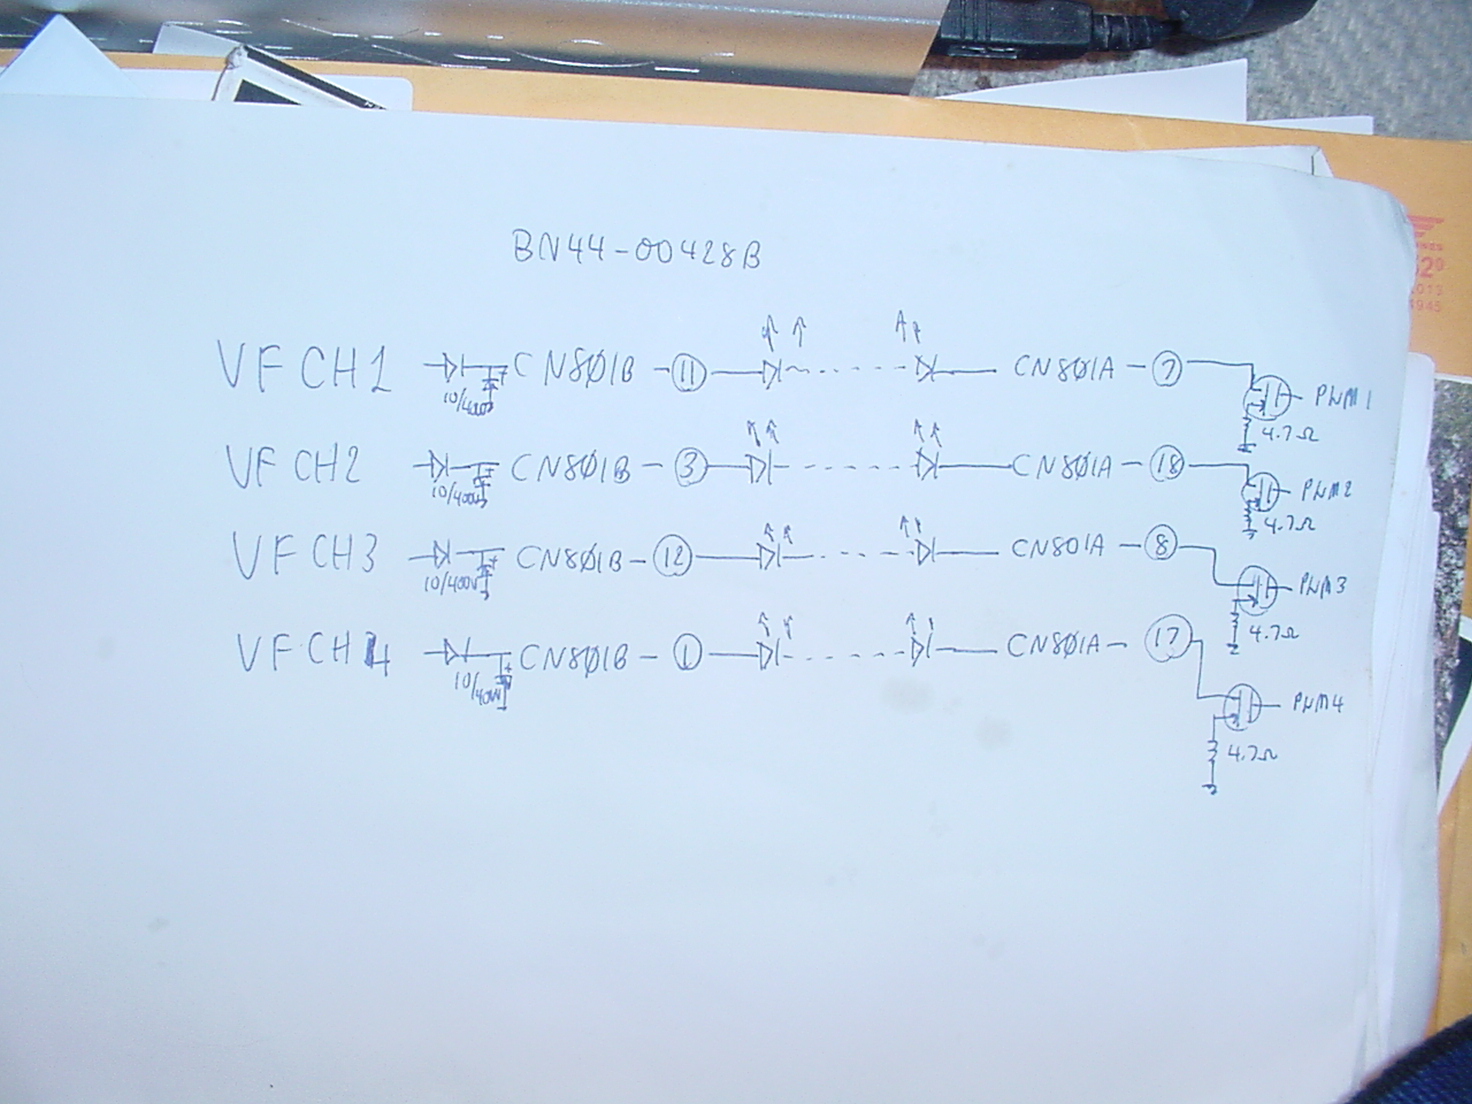 BN44-00428B
VF CH1 10/400V CN801B - 11 CN801A - 7 PWM1
4.7Ω
VF CH2 10/400V CN801B - 3 CN801A - 18 PWM2
4.7Ω
VF CH3 10/400V CN801B - 12 CN801A - 8 PWM3
4.7Ω
VF CH4 10/400V CN801B - 1 CN801A - 17 PWM4
4.7Ω
29
1945